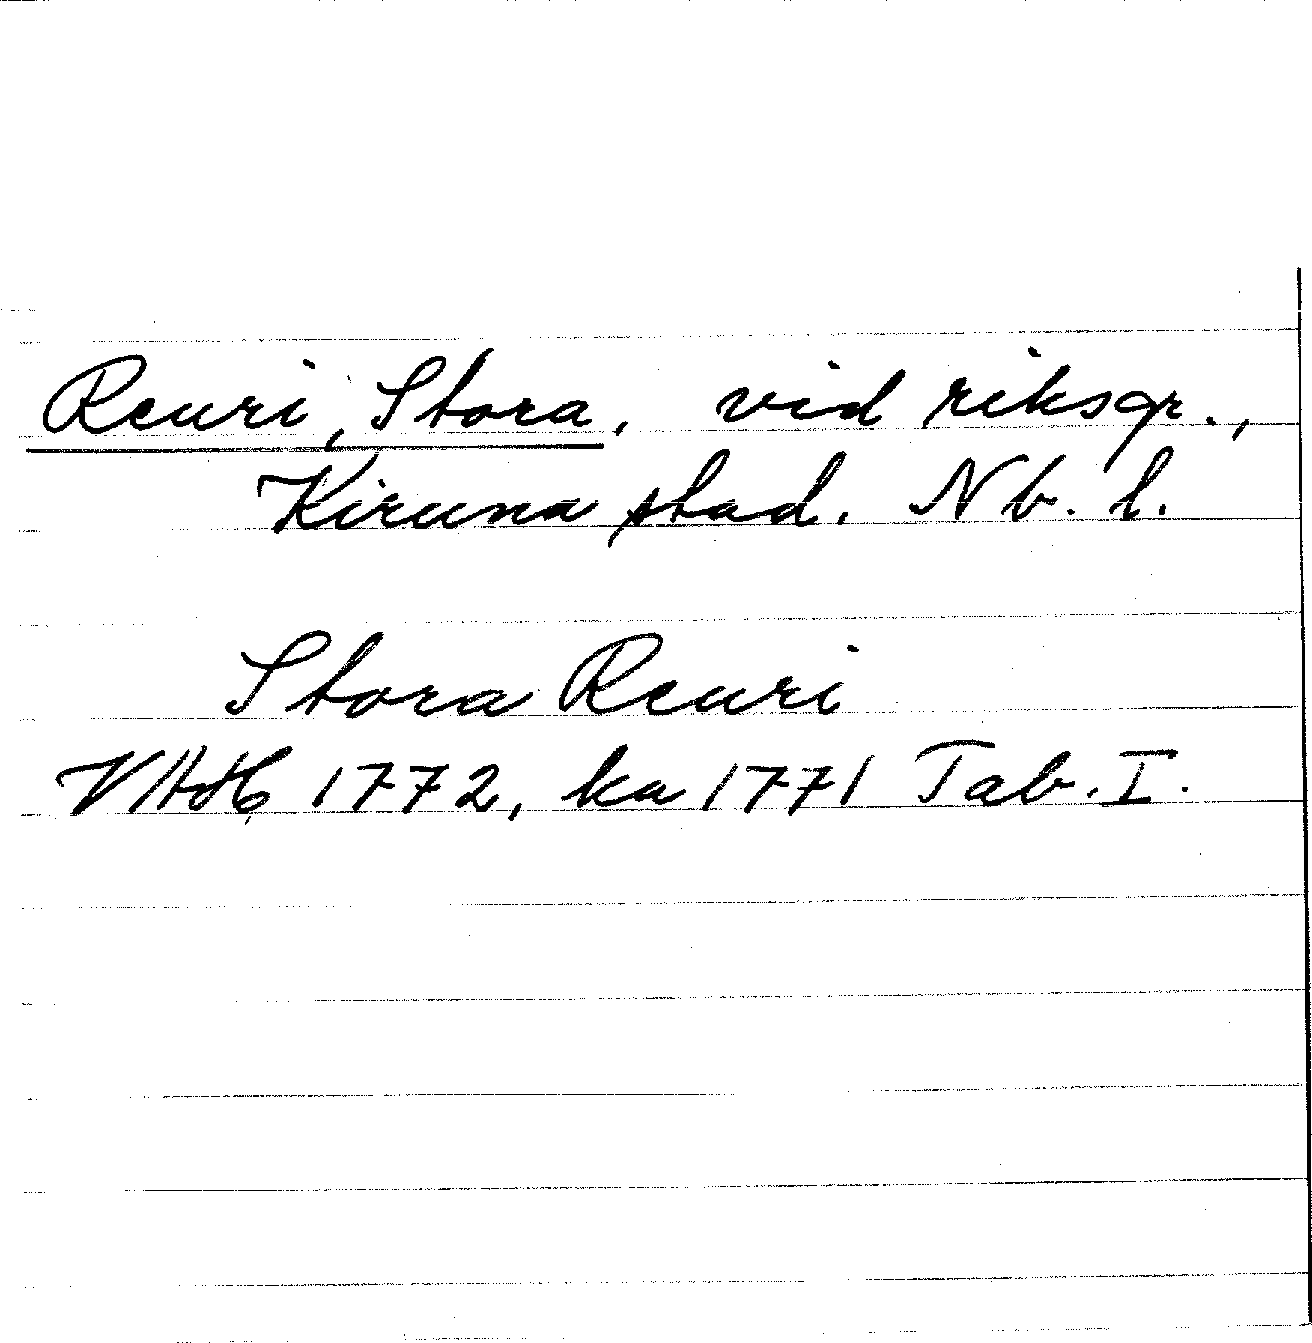 Reuri, Stora, vid riksgr.,
Kiruna stad. Nb. l.
Stora Reuri
VAH 1772, ka 1771 Tab. I.